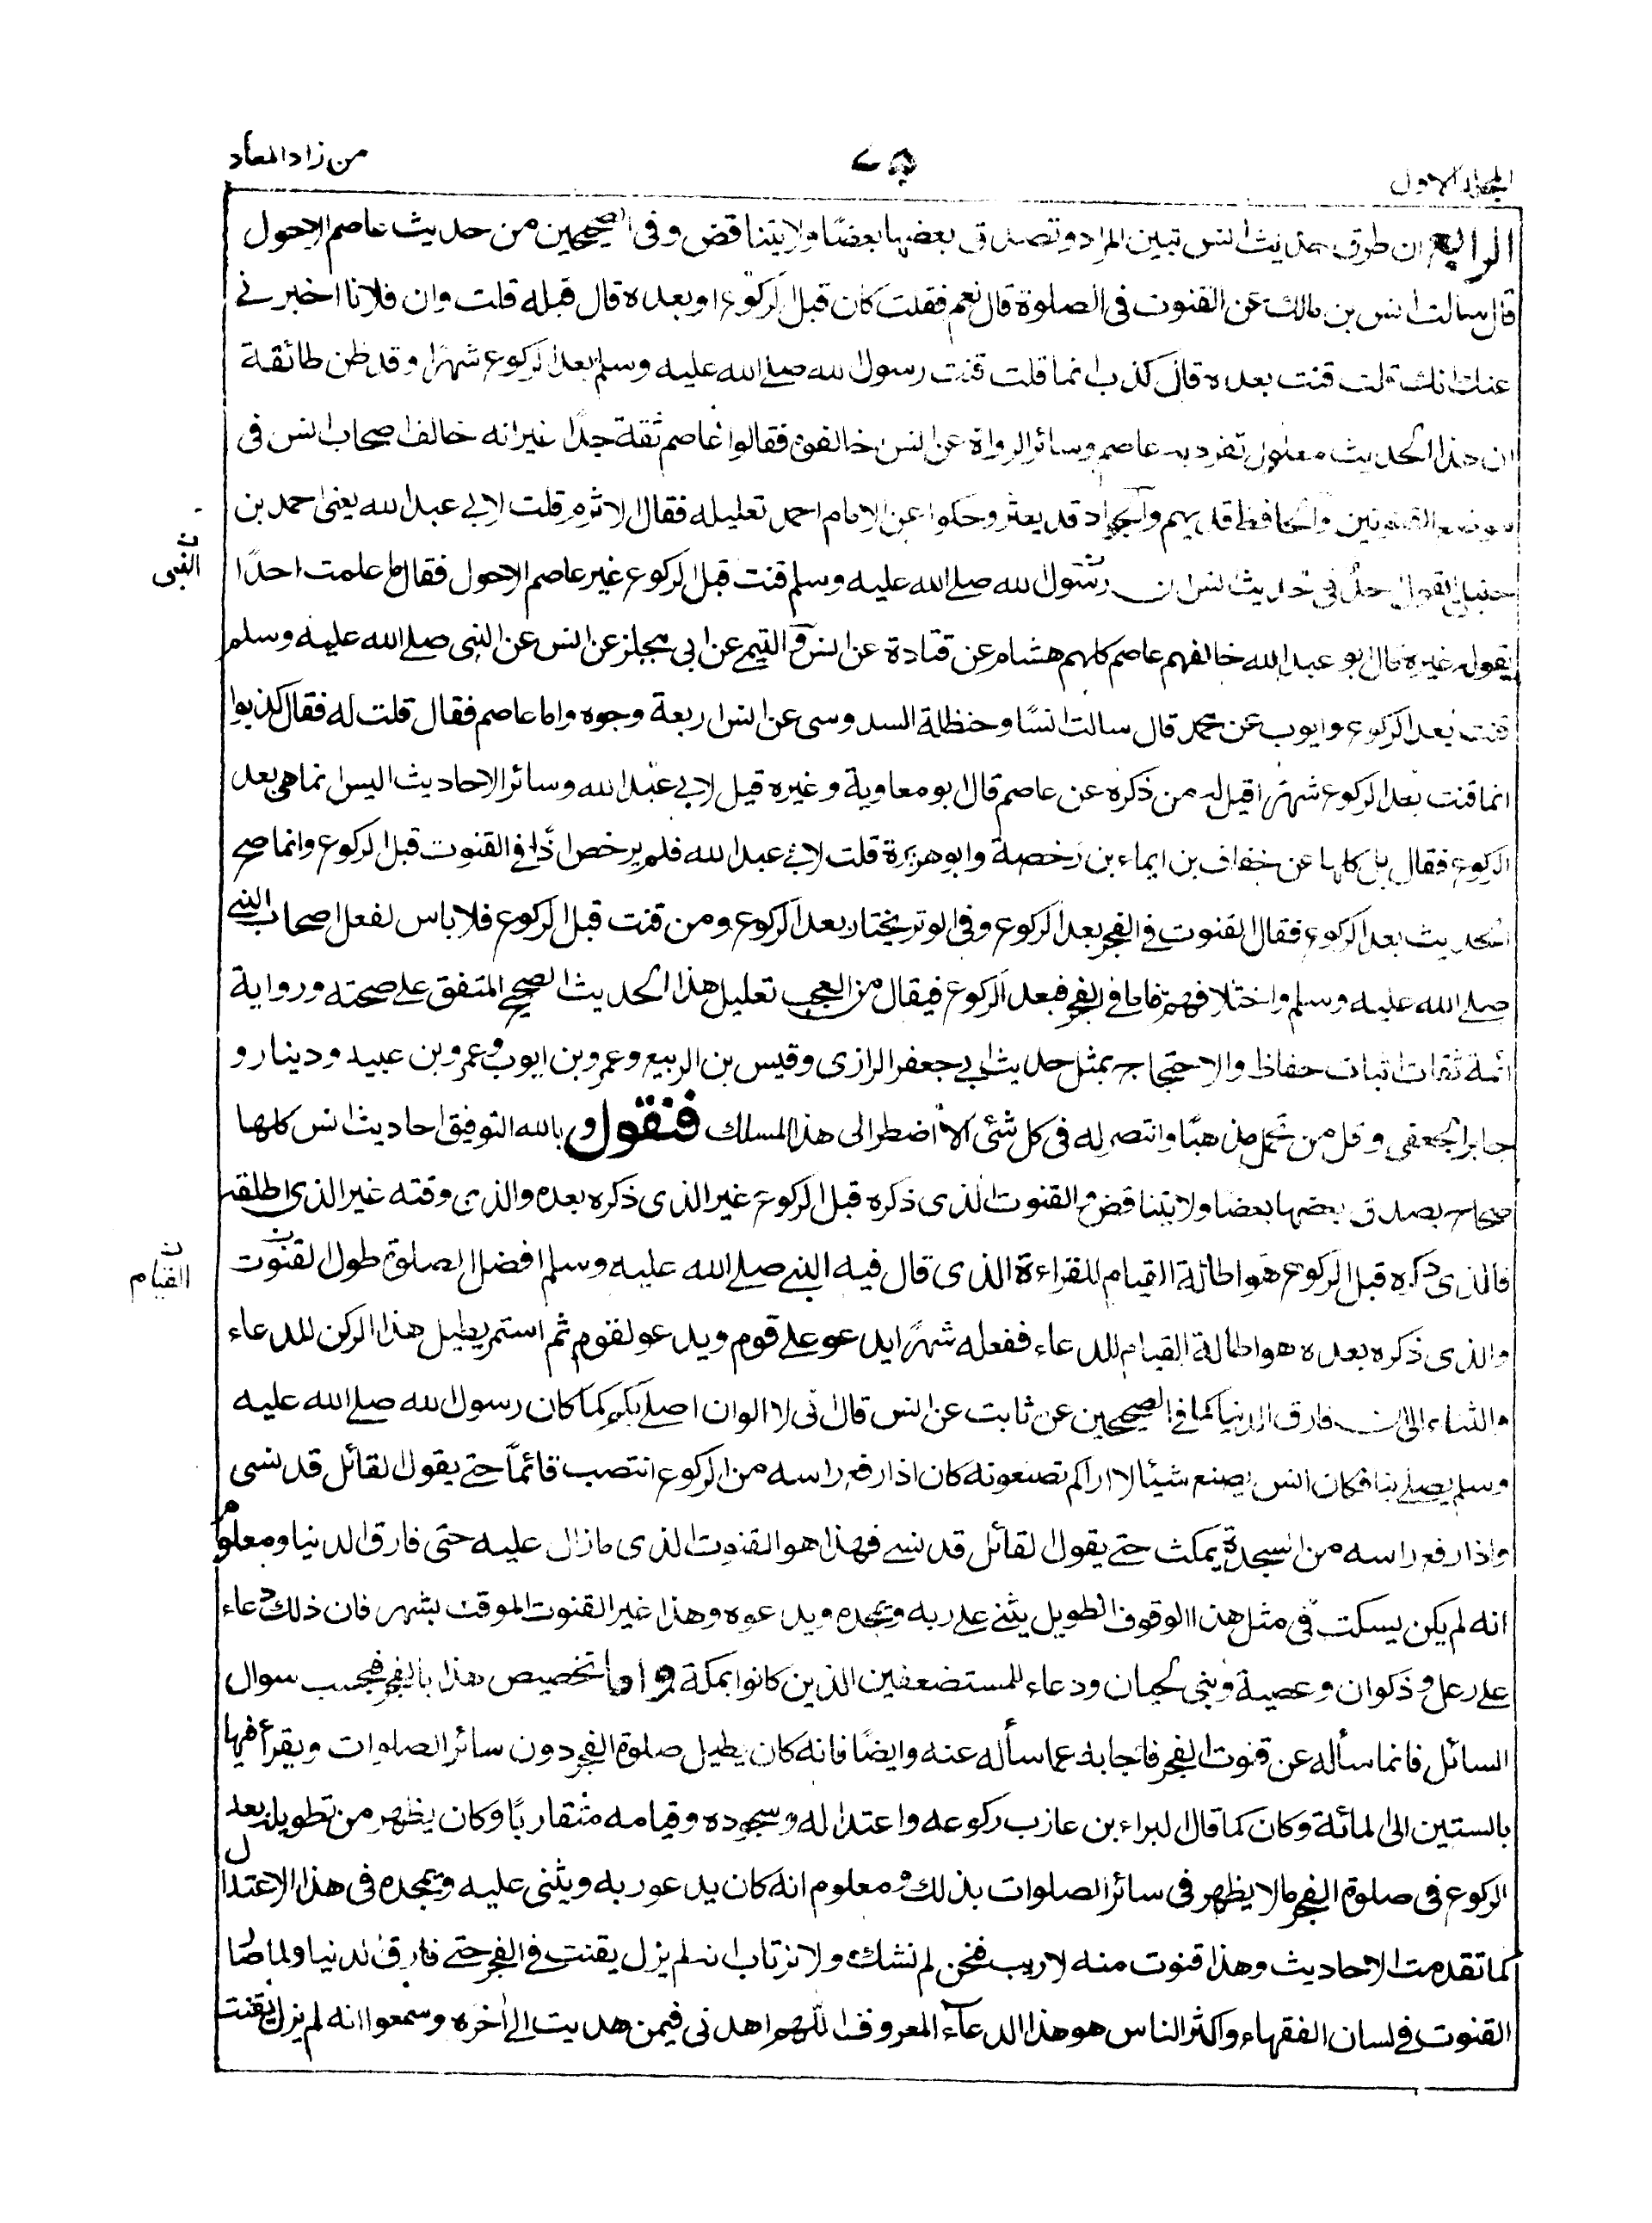 المجلد الاول
٧٥
من زاد المعاد
الرابع ان طرق حديث انس تبين المراد وتصدق بعضها بعضًا ولا يتناقض وفى الصحيحين من حديث عاصم الاحول
قال سالت انس بن مالك عن القنوت فى الصلوة قال نعم فقلت كان قبل الركوع او بعده قال قبله قلت وان فلانا اخبرنے
عنك انك قلت قنت بعده قال كذب انما قلت قنت رسول الله صلے الله عليه وسلم بعد الركوع شهرًا وقد ظن طائفة
ان هذا الحديث معلول تفرد به عاصم وسائر الرواة عن انس خالفوه فقالوا عاصم ثقة جدًا غير انه خالف اصحاب انس فى
موضع القنوتين والحافظ قد يهم والجواد قد يعثر وحكوا عن الامام احمد تعليله فقال الاثرم قلت لابى عبد الله يعنى احمد بن
حنبل ايقول احد فى حديث انس ان رسول الله صلے الله عليه وسلم قنت قبل الركوع غير عاصم الاحول فقال ما علمت احدًا
النبى
يقوله غيره قال ابو عبد الله خالفهم عاصم كلهم هشام عن قتادة عن انس والتيمے عن ابى مجلز عن انس عن النبى صلے الله عليه وسلم
قنت بعد الركوع وايوب عن محمد قال سالت انسًا وحنظلة السدوسى عن انس اربعة وجوه واما عاصم فقال قلت له فقال كذبوا
انما قنت بعد الركوع شهرًا قيل له من ذكره عن عاصم قال ابو معاوية وغيره قيل لابى عبد الله وسائر الاحاديث اليس انما هى بعد
الركوع فقال بل كلها عن خفاف بن ايماء بن رخصة وابو هريرة قلت لابى عبد الله فلم يرخص اذًا فى القنوت قبل الركوع وانما صح
الحديث بعد الركوع فقال القنوت فى الفجر بعد الركوع وفى الوتر يختار بعد الركوع ومن قنت قبل الركوع فلا باس لفعل اصحاب النبے
صلے الله عليه وسلم واختلافهم فاما فى الفجر فبعد الركوع فيقال من العجب تعليل هذا الحديث الصحيح المتفق على صحته ورواية
ائمة ثقات اثبات حفاظ والاحتجاج بمثل حديث ابى جعفر الرازى وقيس بن الربيع وعمرو بن ايوب وعمرو بن عبيد ودينار و
جابر الجعفى وقل من تحمل مذهبًا وانتصر له فى كل شئى الا اضطر الى هذا المسلك فنقول وبالله التوفيق احاديث انس كلها
صحاح يصدق بعضها بعضا ولا يتناقض والقنوت الذى ذكره قبل الركوع غير الذى ذكره بعده والذى وقته غير الذى اطلقه
فالذى ذكره قبل الركوع هو اطالة القيام للقراءة الذى قال فيه النبے صلے الله عليه وسلم افضل الصلوة طول القنوت
القيام
والذى ذكره بعده هو اطالة القيام للدعاء ففعله شهرًا يدعو على قوم ويدعو لقوم ثم استمر يطيل هذا الركن للدعاء
والثناء الى ان فارق الدنيا كما فى الصحيحين عن ثابت عن انس قال انى لا الوان اصلے بكم كما كان رسول الله صلے الله عليه
وسلم يصلے بنا فكان انس يصنع شيئا لا اراكم تصنعونه كان اذا رفع راسه من الركوع انتصب قائمًا حتے يقول القائل قد نسى
واذا رفع راسه من السجدة يمكث حتے يقول القائل قد نسے فهذا هو القنوت الذى ما زال عليه حتى فارق الدنيا ومعلوم
انه لم يكن يسكت فى مثل هذا الوقوف الطويل يثنے علے ربه ويمجده ويدعوه وهذا غير القنوت الموقت بشهر فان ذلك دعاء
علے رعل وذكوان وعصية وبنى لحيان ودعاء للمستضعفين الذين كانوا بمكة واما تخصيص هذا بالفجر فبحسب سوال
السائل فانما سأله عن قنوت الفجر فاجابه عما سأله عنه وايضًا فانه كان يطيل صلوة الفجر دون سائر الصلوات ويقرأ فيها
بالستين الى المائة وكان كما قال البراء بن عازب ركوعه واعتداله وسجوده وقيامه متقاربًا وكان يظهر من تطويله بعد
الركوع فى صلوة الفجر ما لا يظهر فى سائر الصلوات بذلك ومعلوم انه كان يدعو ربه ويثنى عليه ويمجده فى هذا الاعتدال
كما تقدمت الاحاديث وهذا قنوت منه لا ريب فنحن لم نشك ولا نرتاب انه لم يزل يقنت فى الفجر حتے فارق الدنيا ولما صار
القنوت فى لسان الفقهاء واكثر الناس هو هذا الدعاء المعروف اللهم اهدنى فيمن هديت الى اخره وسمعوا انه لم يزل يقنت